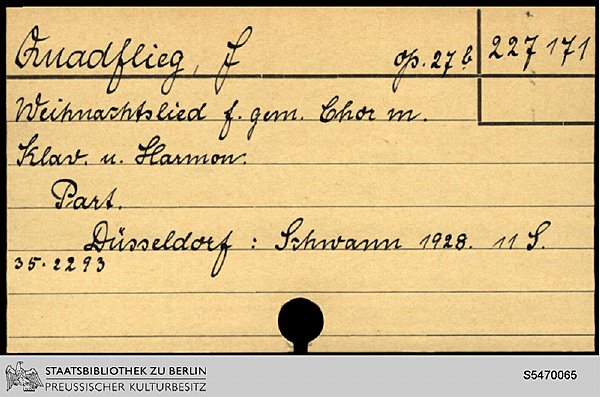 Quadflieg, J op. 27 b 227 171
Weihnachtslied f. gem. Chor m.
Klav. u. Harmon.
Part.
Düsseldorf : Schwann 1928. 11 S.
35.2293
STAATSBIBLIOTHEK ZU BERLIN
PREUSSISCHER KULTURBESITZ
S5470065